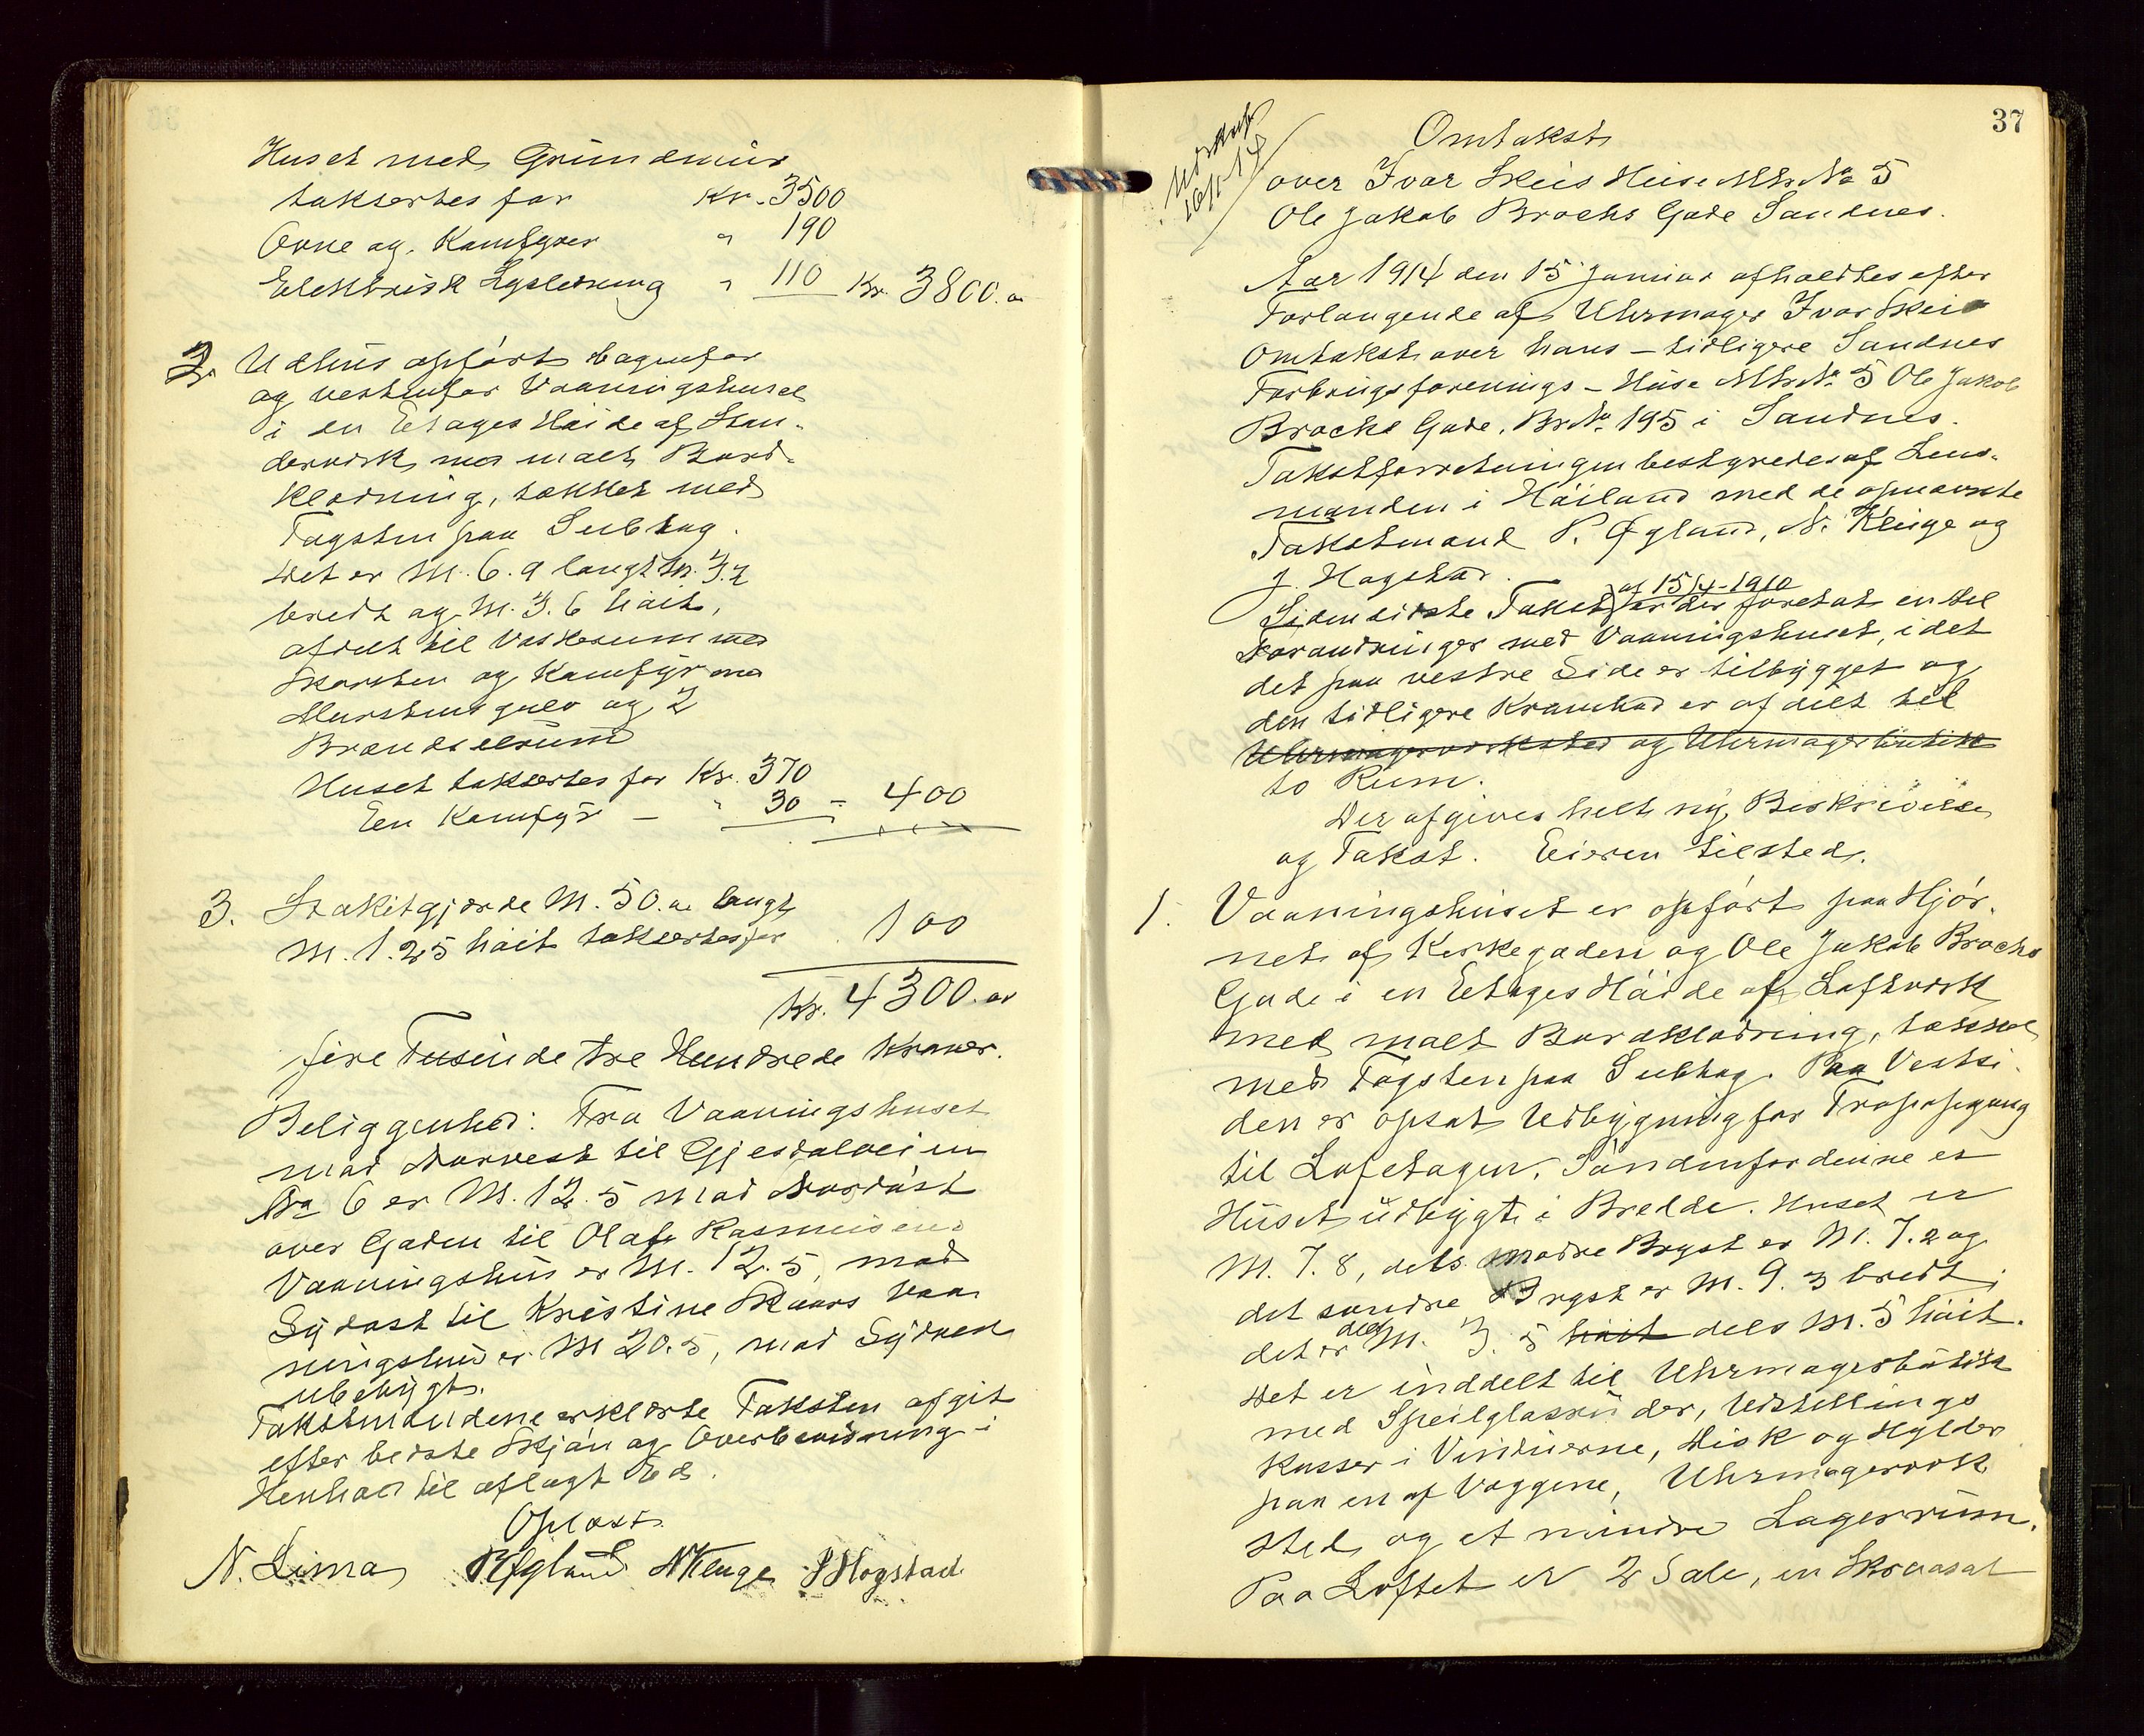 Huset med Grundmur
takseres for Kr. 3500
Ovne og Komfyrer " 190
Elektrisk Lysledning " 110 Kr. 3800.00
2. Udhus opført bagenfor
og vestenfor Vaaningshuset
i en Etages Høide af Sten-
derværk med malt Bord-
klædning, tækket med
Tagsten paa Subtag.
Det er M. 6.9 langt M. 3.2
bredt og M. 3.6 høit,
afdelt til Vaskerum med
Skorsten og Komfyr med
Murstensgulv og 2
Brændselrum
Huset takseres for Kr. 370
En Komfyr - " 30 = 400
3. Stakitgjærde M. 50.00 langt
M. 1.25 høit takseres for 100
Kr. 4300.00
fire Tusinde tre Hundrede Kroner.
Beliggenhed: Fra Vaaningshuset
mod Nordvest til Gjesdalveien
No 6 er M. 12.5 mod Nordøst
over Gaden til Olaf Rasmusens
Vaaningshus er M. 12.5, mod
Sydøst til Kristine Skaars Vaa
ningshus er M 20.5, mod Sydvest
ubebygt.
Takstmændene erklærte Taksten afgit
efter bedste Skjøn og Overbevisning i
Henhold til aflagt Ed.
Oplæst.
N. Lima P Øgland N Kluge J Hogstad
37
Udskr
16/1-14
Omtakst
over Ivar Skeis Huse Mtr. No 5
Ole Jakob Brochs Gade Sandnes.
Aar 1914 den 15 Januar afholdtes efter
Forlangende af Uhrmager Ivar Skei
Omtakst over hans - tidligere Sandnes
Forbrugsforenings - Huse Mtr. No 5 Ole Jakob
Brochs Gade, Br. No. 195 i Sandnes.
Takstforretningen bestyredes af Lens-
manden i Høiland med de opnævnte
Takstmænd P. Øgland, N. Kluge og
J. Hogstad.
af 15/4-1910
Siden sidste Takst er der foretat en Del
Forandringer med Vaaningshuset, idet
det paa vestre Side er tilbygget og
den tidligere Krambod er afdelt til
Uhrmagerværksted og Uhrmagerbutik
to Rum.
Der afgives helt ny Beskrivelse
og Takst. Eieren tilsted.
1. Vaaningshuset er opført paa Hjør-
net af Kirkegaden og Ole Jakob Brochs
Gade i en Etages Høide af Loftværk
med malt Bordklædning, tækket
med Tagsten paa Subtag. Paa Vestsi-
den er opsat Udbygning for Trappegang
til Loftetagen. Søndenfor denne er
Huset udbygt i Bredde. Huset er
M. 7.8, dets nordre Bryst er M. 7.2 og
det søndre Bryst er M. 9.3 bredt;
det er dels M. 3.5 høit dels M. 5 høit.
Det er inddelt til Uhrmagerbutik
med Speilglasruder, Udstillings
kasser i Vinduerne, Disk og Hylder
paa en af Væggene, Uhrmagerværk
sted, og et mindre Lagerrum.
Paa Loftet er 2 Sale, en Skraasal